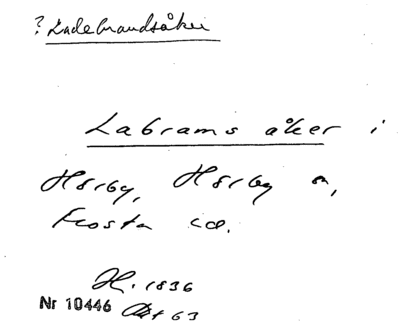 ? Ladebrandsåker
Labrams åker i
Hörby, Hörby sn,
Frosta hd.
H. 1836
Nr 10446 Akt 63